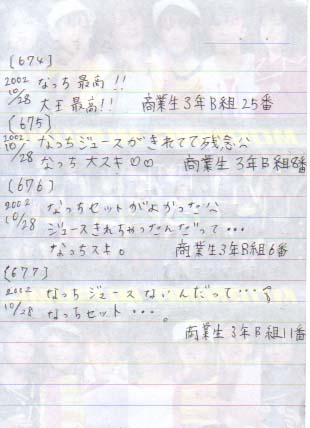 [674]
2002 なっち最高!!
10/28 大王最高!! 商業生3年B組25番
[675]
2002 なっちジュースがきれてて残念
10/28 なっち大スキ♡♡ 商業生3年B組8番
[676]
2002 なっちセットがよかった
10/28 ジュースきれちゃったんだって…
なっちスキ。 商業生3年B組6番
[677]
2002 なっちジュースないんだって…
10/28 なっちセット…。
商業生3年B組11番